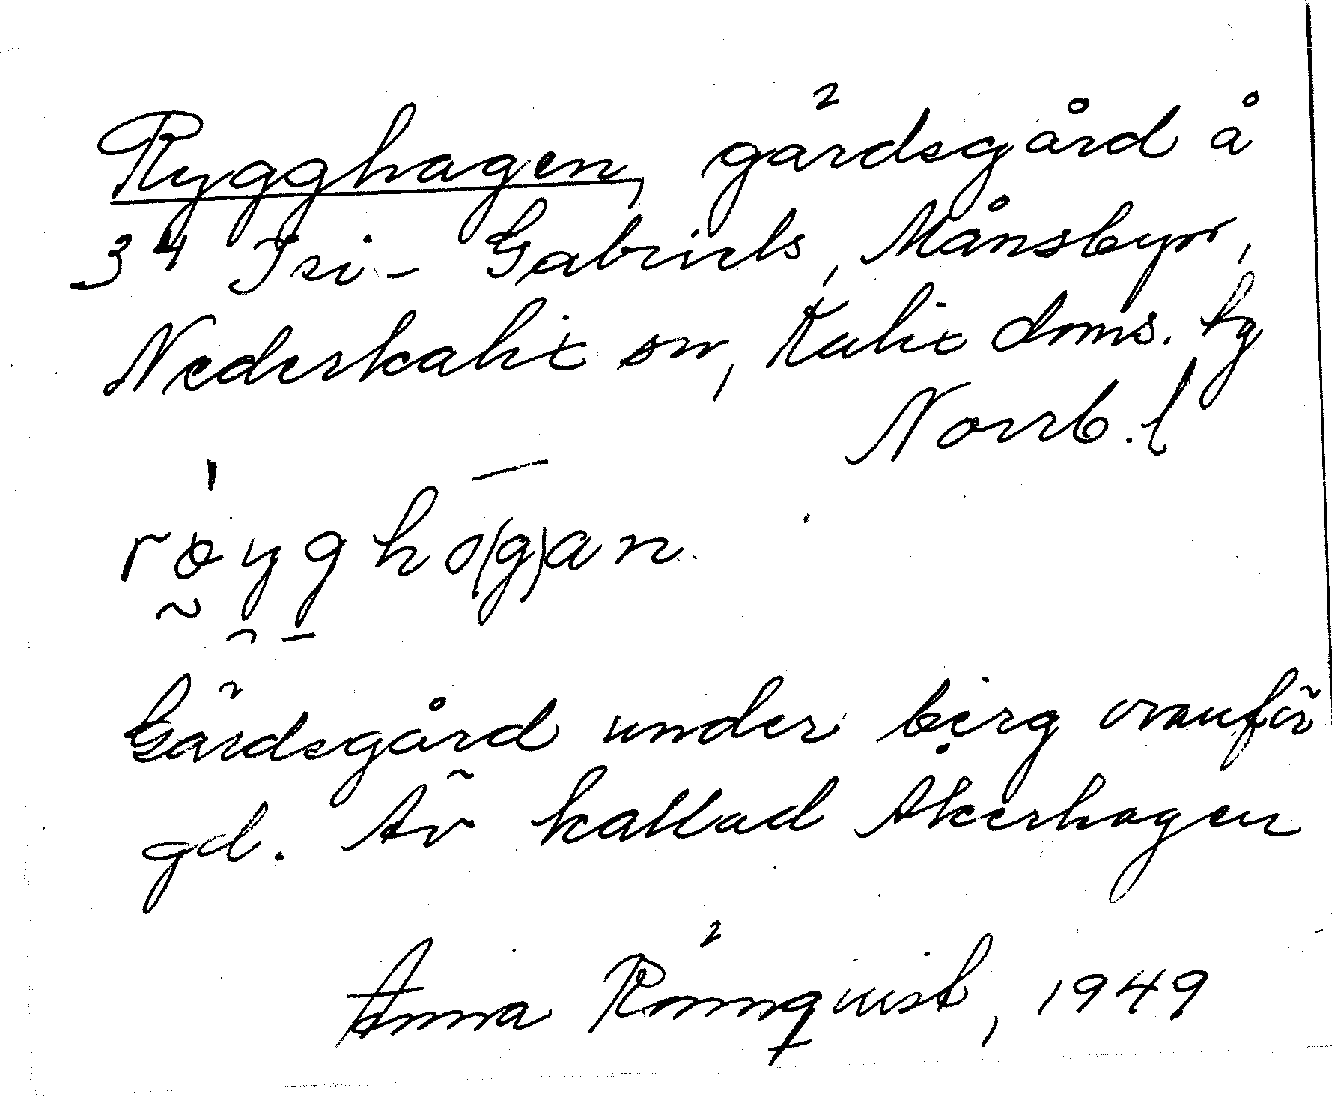 Rygghagen, gärdsgård å
3⁴ Isi- Gabriels, Månsbyn,
Nederkalix sn, Kalix doms. hg
Norrb. l
røygho(g)an.
Gärdsgård under berg ovanför
gd. Äv kallad Åkerhagen
Anna Rönnquist, 1949